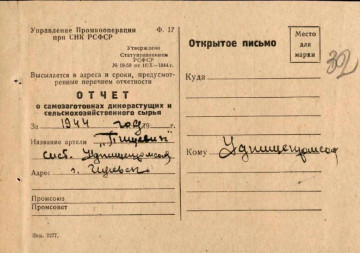 Управление Промкооперации
при СНК РСФСР
Ф. 17
Утверждено
Статуправлением
РСФСР
№ 10-59 от 10/X—1944 г.
Высылается в адреса и сроки, предусмот-
ренные перечнем отчетности
ОТЧЕТ
о самозаготовках дикорастущих и
сельскохозяйственного сырья
За 1944 год 19 г.
Название артели „Пищевик"
сист.
Адрес: г.
Промсоюз
Промсовет
Открытое письмо
Место
для
марки
32
Куда
Кому